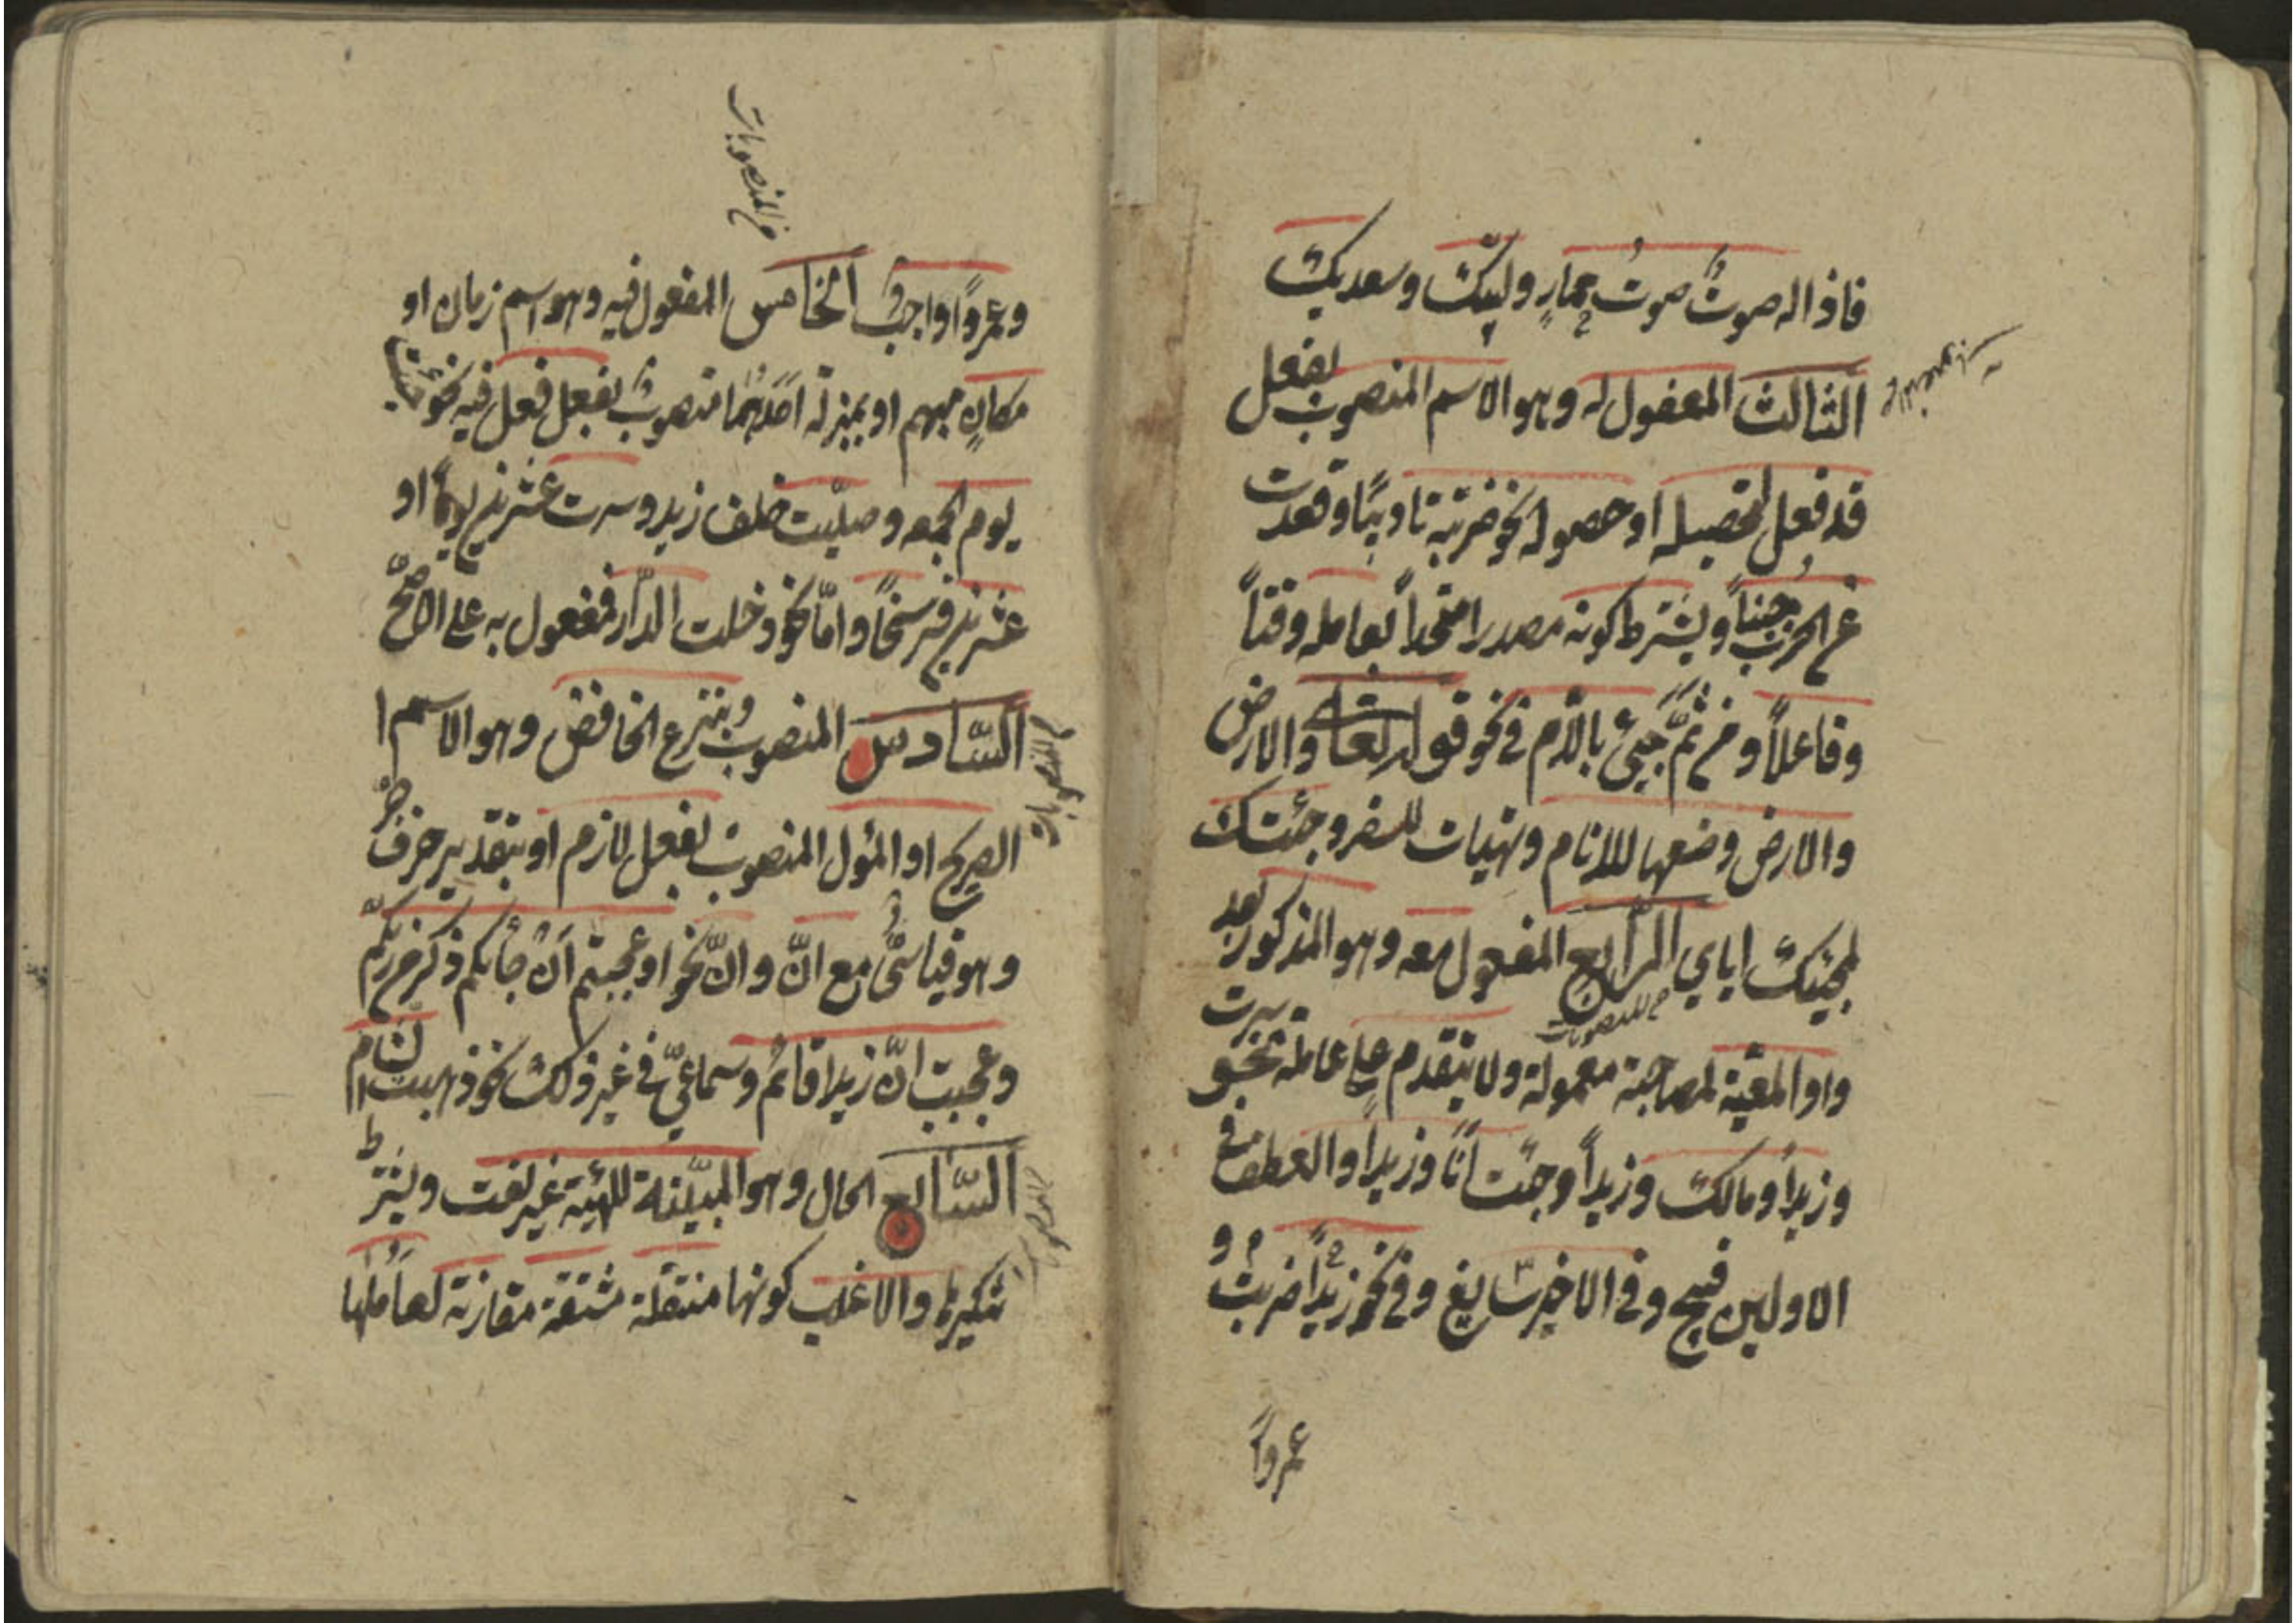 فاذا له صوتٌ صوتُ حمارٍ ولبيّك وسعديك
الثالث المعفول له وهو الاسم المنصوب بفعل
قد فعل لتحصيله او حصوله نحو ضربته تاديبًا وقعدت
عن الحرب جبناً ويشترط كونه مصدرا متحداً بعامله وقتاً
وفاعلاً ومن ثمّ جيئ بالّام في نحو قوله تعالى والارض
والارض وضعها للانام وتهيات للسفر وجئتك
لمجيئك اياي الرّابع المفعول معه وهو المذكور بعد
واو المعّية لمصاحبة معمولة ولا يتقدم على عامله نحو سرت
وزيداً ومالك وزيداً وجئت انا وزيداً والعطف في
الاولين قبيح وفى الاخير سايغ وفي نحو زيداً ضربتُ و
عمرواً
من المنصوبات
وعمرواً واجبٌ الخامس المفعول فيه وهو اسم زمان او
مكانٍ مبهم او بمنزلة احدهما منصوبٌ بفعل فعل فيه نحو جئت
يوم الجمعه وصلّيت خلف زيد وسرت عشرين يوماً او
عشرين فرسخاً وامّا نحو دخلت الدّار فمفعول به على الاصّح
السّادس المنصوب بنزع الخافض وهو الاسم ا
الصريح او المؤل المنصوب بفعل لازم او بتقدير حرف جرّ
وهو قياسّىٌ مع انّ وانّ نحو اوعجبتم اَن جائكم ذكر من ربّكم
وعجبت انّ زيدا قائم وسماعيّ في غير ذلك نحو ذهبت الشام
السّابع الحال وهو المبيّنة للهيئة غير نعت ويشترط
تنكيرها والاغلب كونها منتقلة مشتقة مقارنة لعاملها